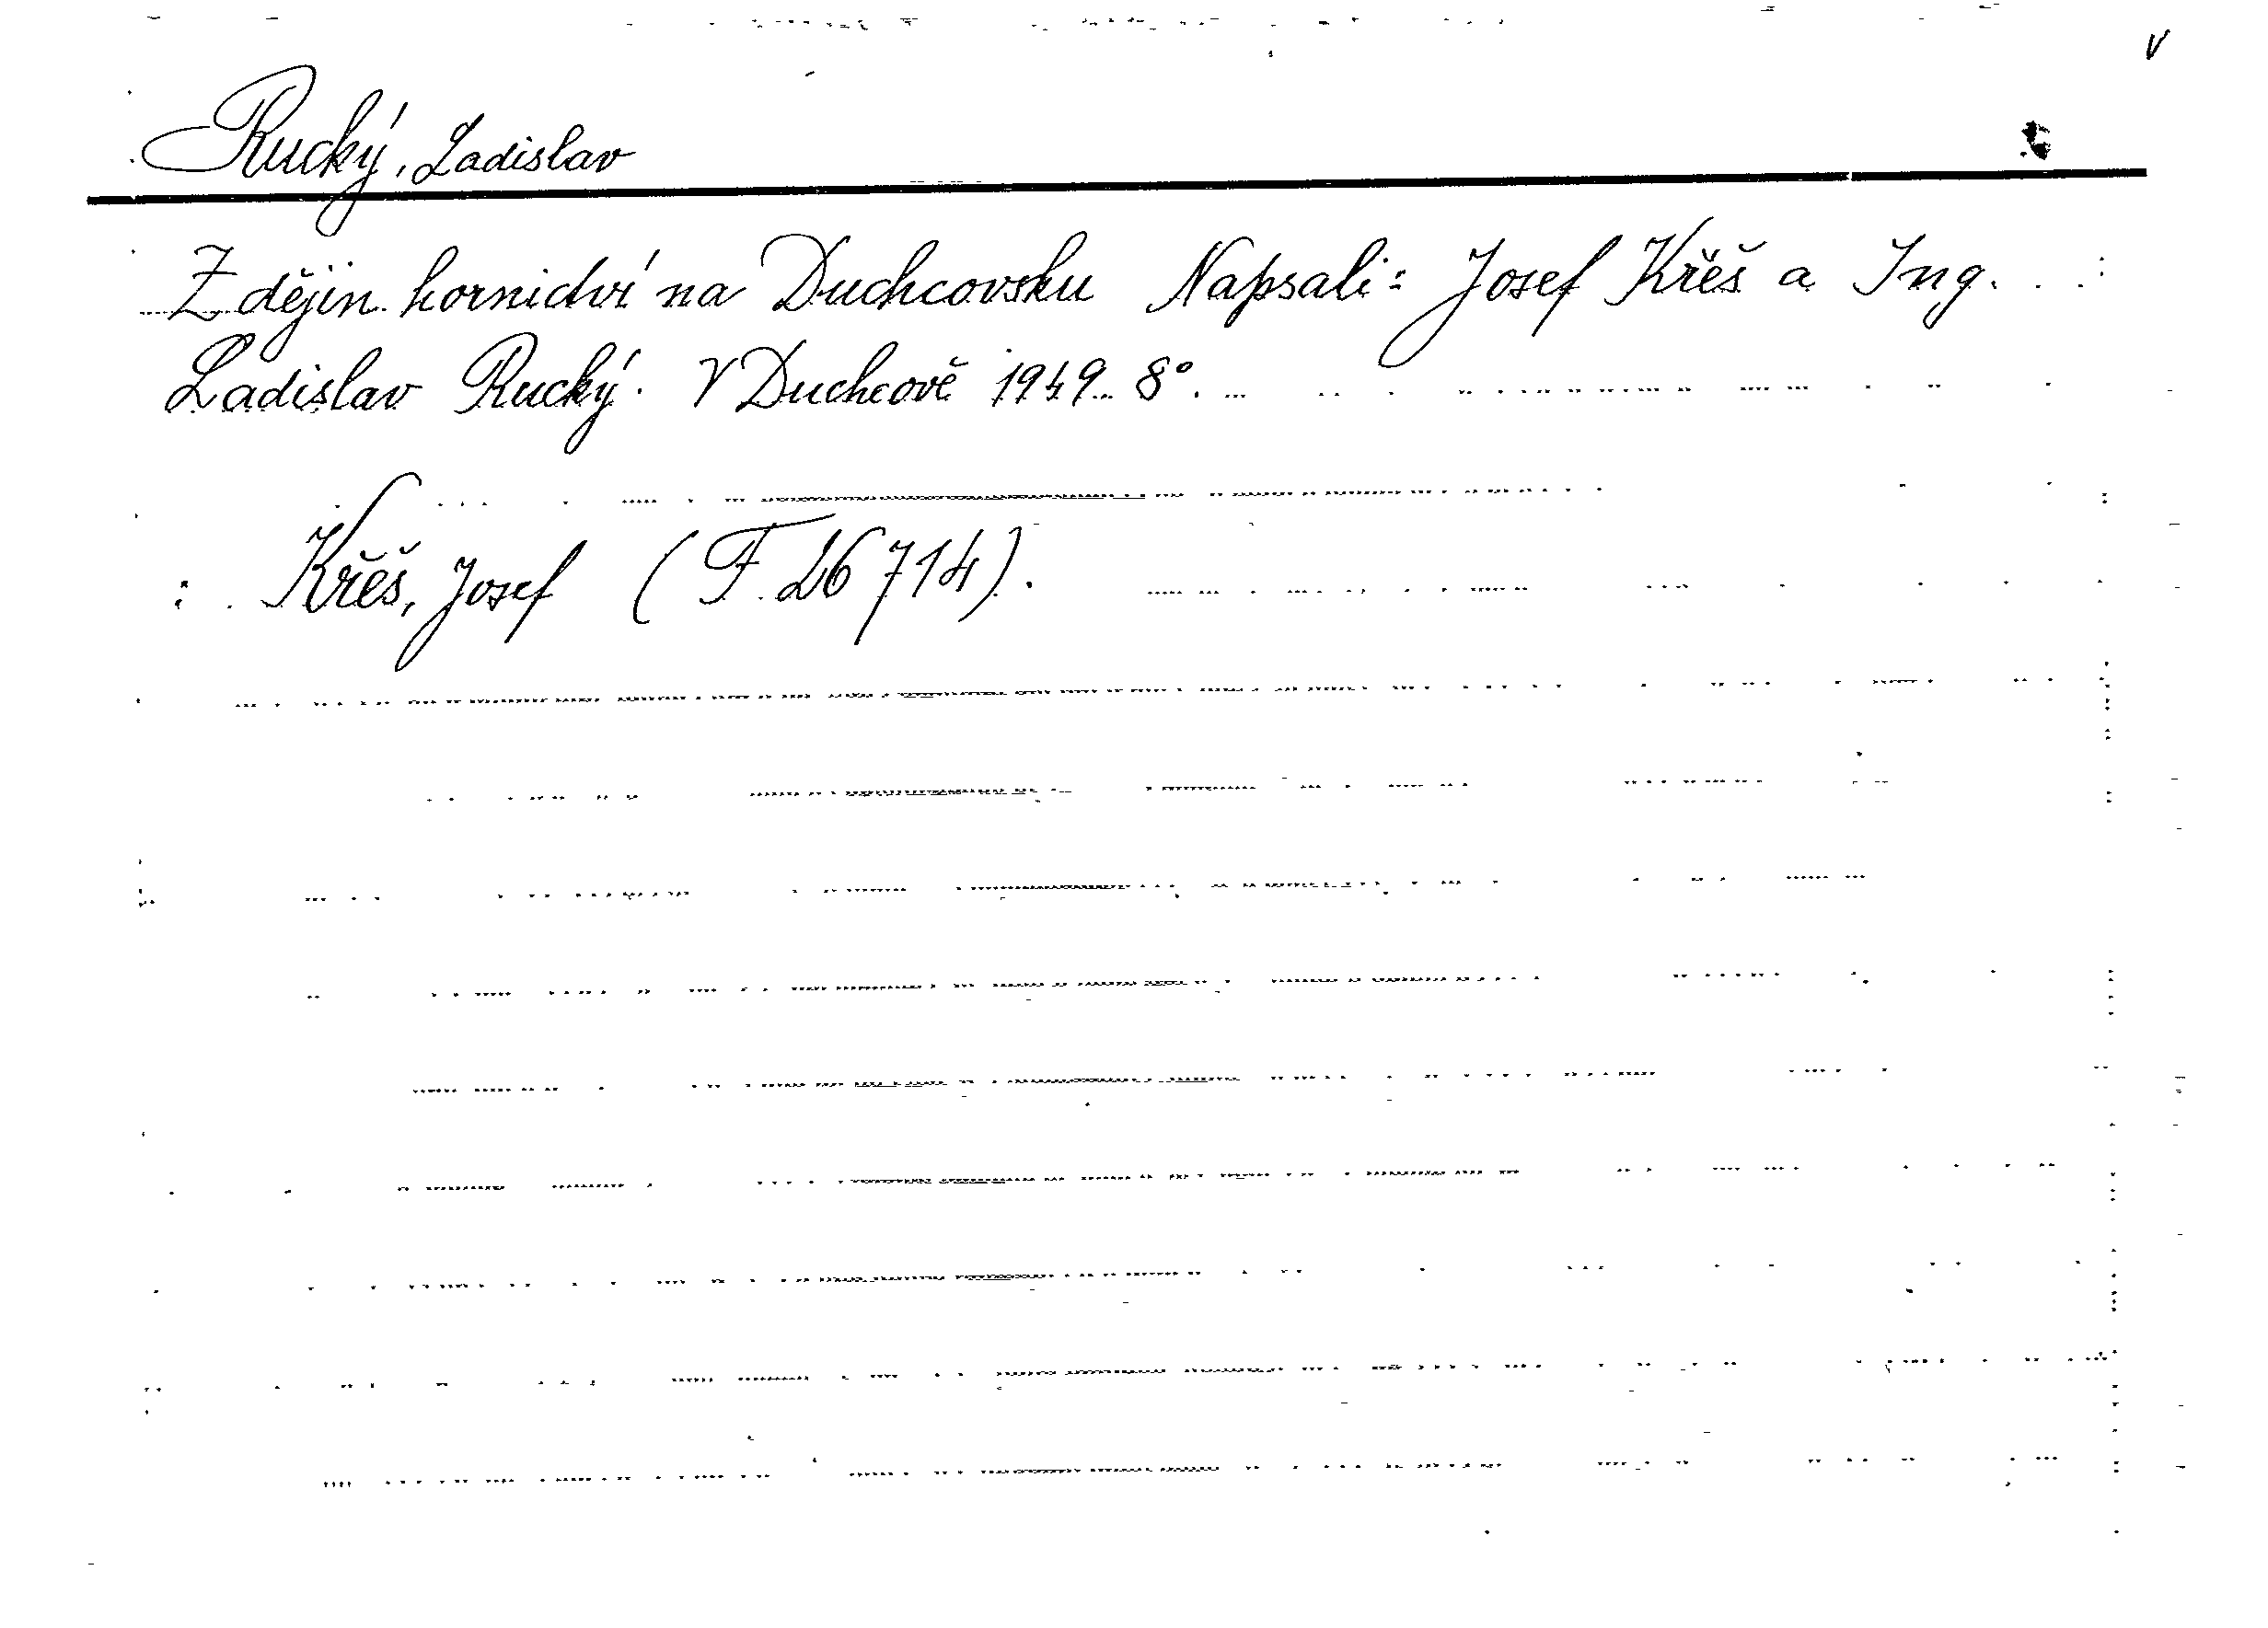 V
Rucký, Ladislav
Z dějin hornictví na Duchcovsku Napsali: Josef Křěš a Ing.
Ladislav Rucký. V Duchcově 1949. 8°.
Křěš, Josef (F 26714).